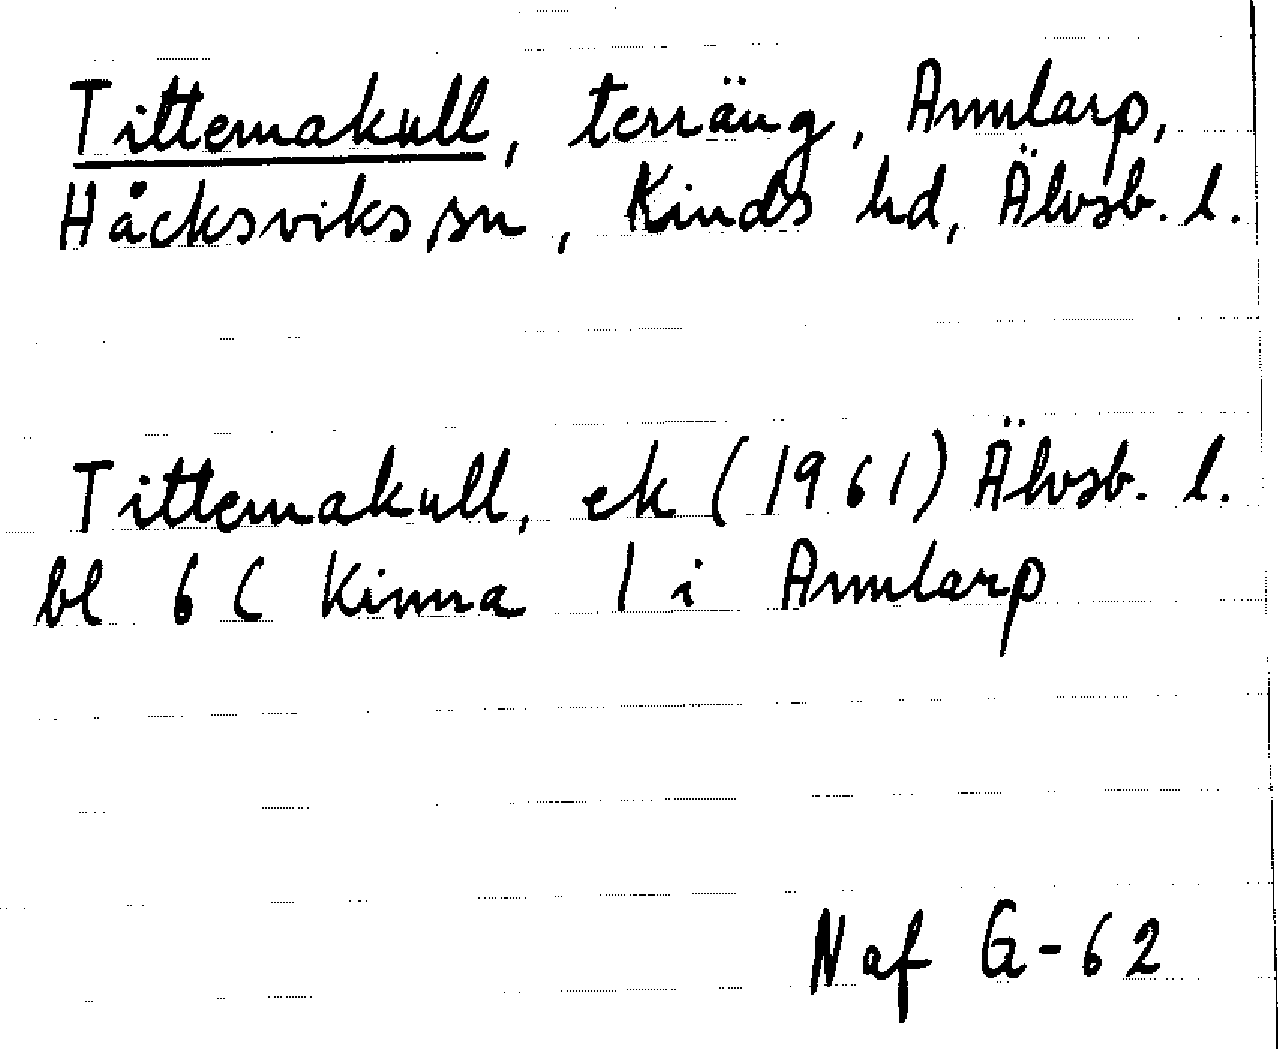 Tittemakull, terräng, Annlarp,
Håcksviks sn, Kinds hd, Älvsb. l.
Tittemakull, ek (1961) Älvsb. l.
bl 6 C Kinna 1 i Annlarp
Naf G-62